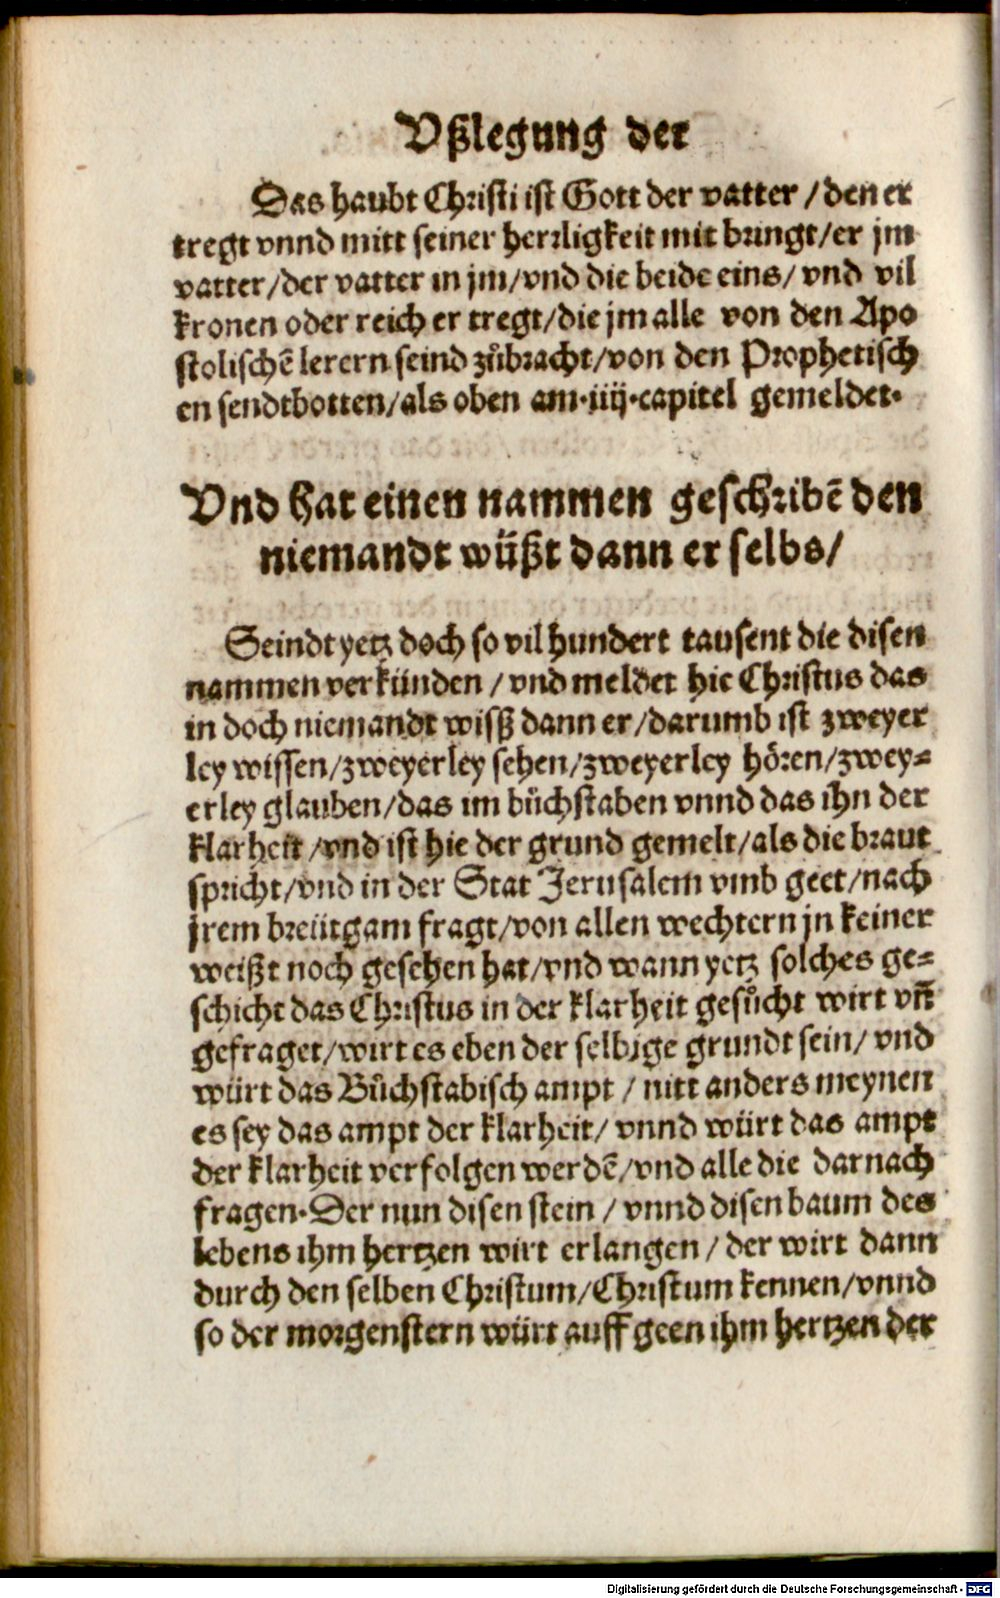 Vßlegung der
Das haubt Christi ist Gott der vatter / den er
tregt vnnd mitt seiner herrligkeit mit bringt/er jm
vatter/der vatter in jm/vnd die beide eins/ vnd vil
kronen oder reich er tregt/die jm alle von den Apo
stolischē lerern seind zůbracht/von den Prophetisch
en sendtbotten/als oben am·iiij·capitel gemeldet·
Vnd hat einen nammen geschribē den
niemandt wüßt dann er selbs/
Seindt yetz doch so vil hundert tausent die disen
nammen verkünden / vnd meldet hie Christus das
in doch niemandt wisß dann er/darumb ist zweyer
ley wissen/zweyerley sehen/zweyerley hören/zwey=
erley glauben/das im bůchstaben vnnd das ihn der
klarheit /vnd ist hie der grund gemelt/als die braut
spricht/vnd in der Stat Jerusalem vmb geet/nach
jrem breütgam fragt/von allen wechtern jn keiner
weißt noch gesehen hat/vnd wann yetz solches ge=
schicht das Christus in der klarheit gesůcht wirt vñ
gefraget/wirt es eben der selbige grundt sein/ vnd
würt das Bůchstabisch ampt / nitt anders meynen
es sey das ampt der klarheit/ vnnd würt das ampt
der klarheit verfolgen werdē/vnd alle die darnach
fragen·Der nun disen stein / vnnd disen baum des
lebens ihm hertzen wirt erlangen / der wirt dann
durch den selben Christum/Christum kennen/vnnd
so der morgenstern würt auff geen ihm hertzen der
Digitalisierung gefördert durch die Deutsche Forschungsgemeinschaft - DFG